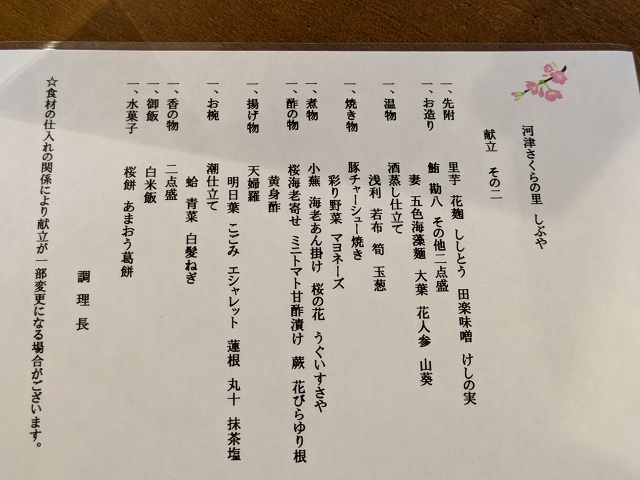 河津さくらの里 しぶや
献立 その二
一、先附
里芋 花麹 ししとう 田楽味噌 けしの実
一、お造り
鮪 勘八 その他二点盛
妻 五色海藻麺 大葉 花人参 山葵
一、温物
酒蒸し仕立て
浅利 若布 筍 玉葱
一、焼き物
豚チャーシュー焼き
彩り野菜 マヨネーズ
一、煮物
小蕪 海老あん掛け 桜の花 うぐいすさや
一、酢の物
桜海老寄せ ミニトマト甘酢漬け 蕨 花びらゆり根
黄身酢
一、揚げ物
天婦羅
明日葉 こごみ エシャレット 蓮根 丸十 抹茶塩
一、お椀
潮仕立て
蛤 青菜 白髪ねぎ
一、香の物
二点盛
一、御飯
白米飯
一、水菓子
桜餅 あまおう葛餅
調理長
☆食材の仕入れの関係により献立が一部変更になる場合がございます。